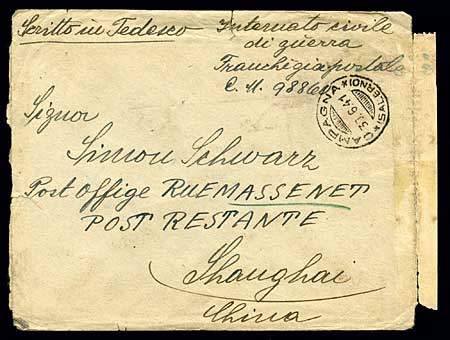 Scritto in Tedesco
Internato civile
di guerra
Franchigia postale
C. M. 9886
CAMPAGNA * (SALERNO) *
30.6.41
Signor
Simon Schwarz
Post Offige RUEMASSENET
POST RESTANTE
Shanghai
China